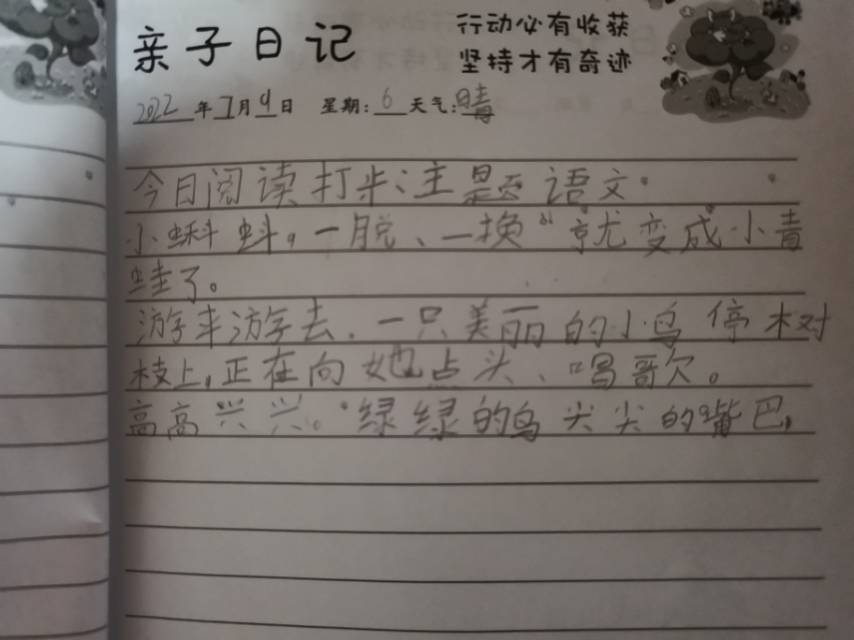 亲子日记
行动必有收获
坚持才有奇迹
2022年7月9日 星期:6 天气:晴
今日阅读打米:主题语文。
小蝌蚪,一脱、一换“就变成小青
蛙了。
游来游去.一只美丽的小鸟停树
枝上,正在向她点头、唱歌欠。
高高兴兴。绿绿的鸟尖尖的嘴巴,